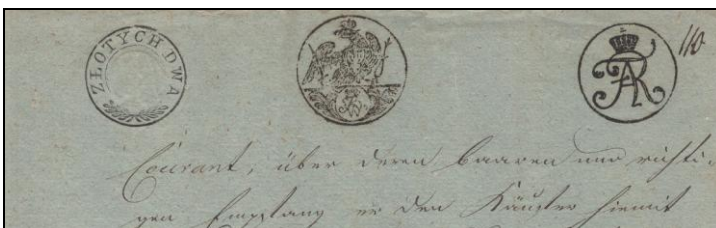 ZŁOTYCH DWA
FR
110
Courant, über deren baaren und richti-
gen Empfang er den Käufer hiemit